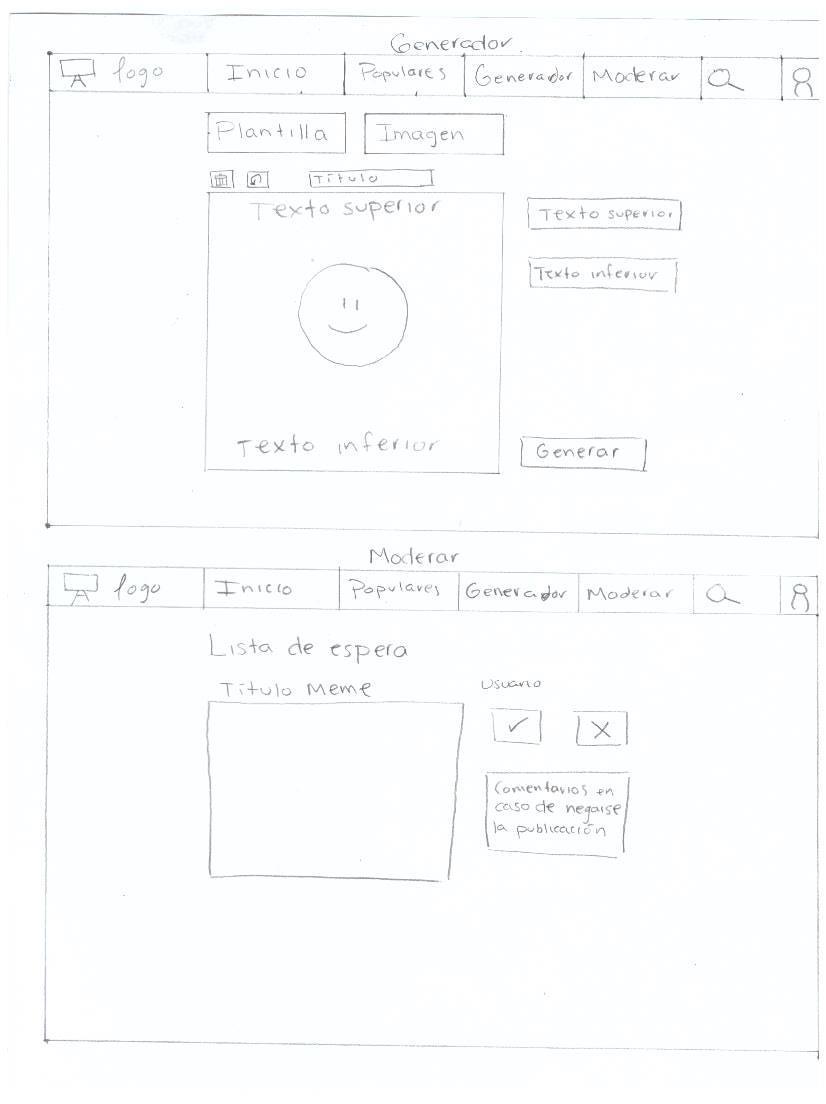 Generador
logo Inicio Populares Generador Moderar
Plantilla Imagen
Título
Texto superior
Texto superior
Texto inferior
Texto inferior
Generar
Moderar
logo Inicio Populares Generador Moderar
Lista de espera
Título Meme
Usuario
Comentarios en
caso de negarse
la publicación